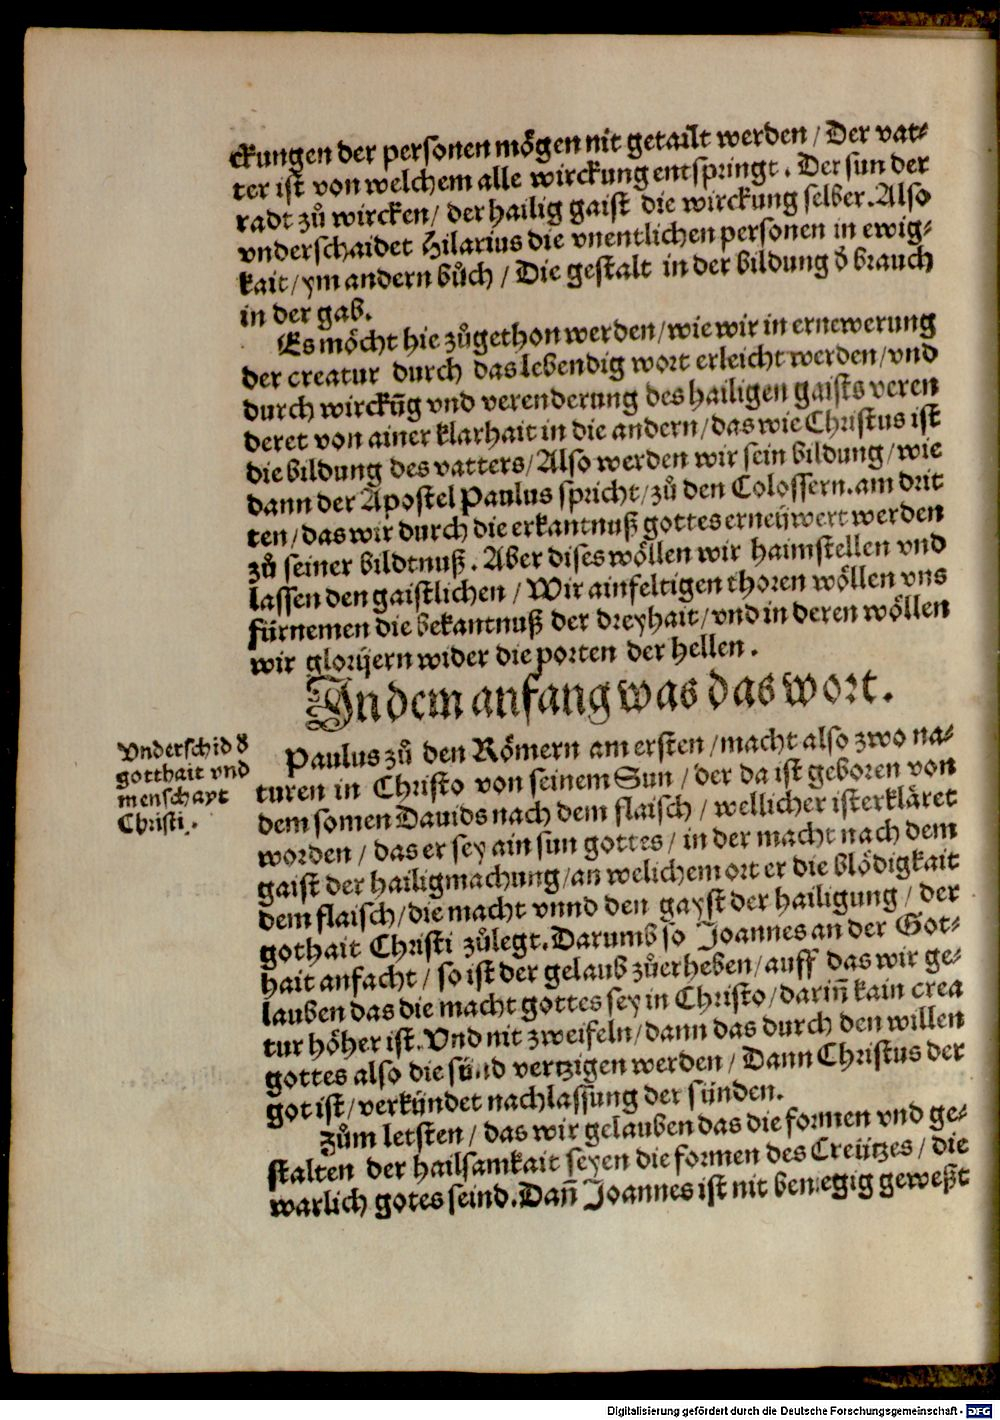 ckungen der personen mögen nit getailt werden / Der vat⸗
ter ist von welchem alle wirckung entspringt. Der sun der
radt zů wircken / der hailig gaist die wirckung selber. Also
vnderschaidet Hilarius die vnentlichen personen in ewig⸗
kait / ym andern bůch / Die gestalt in der bildung d̄ brauch
in der gab.
Es möcht hie zůgethon werden / wie wir in ernewerung
der creatur durch das lebendig wort erleicht werden / vnd
durch wirckūg vnd verenderung des hailigen gaists veren
deret von ainer klarhait in die andern / das wie Christus ist
die bildung des vatters / Also werden wir sein bildung / wie
dann der Apostel Paulus spricht / zů den Colossern. am drit
ten / das wir durch die erkantnuß gottes erneüwert werden
zů seiner bildtnuß. Aber dises wöllen wir haimstellen vnd
lassen den gaistlichen / Wir ainfeltigen thoren wöllen vns
fürnemen die bekantnuß der dreyhait / vnd in deren wöllen
wir glorijern wider die porten der hellen.
In dem anfang was das wort.
Vnderschid d̄
gotthait vnd
menschayt
Christi.
Paulus zů den Römern am ersten / macht also zwo na⸗
turen in Christo von seinem Sun / der da ist geboren von
dem somen Dauids nach dem flaisch / wellicher ist erkläret
worden / das er sey ain sun gottes / in der macht nach dem
gaist der hailigmachung / an welichem ort er die blödigkait
dem flaisch / die macht vnnd den gayst der hailigung / der
gothait Christi zůlegt. Darumb so Joannes an der Got⸗
hait anfacht / so ist der gelaub zůerheben / auff das wir ge⸗
lauben das die macht gottes sey in Christo / dariñ kain crea
tur höher ist. Vnd nit zweifeln / dann das durch den willen
gottes also die sünd vertzigen werden / Dann Christus der
got ist / verkündet nachlassung der sünden.
Zům letsten / das wir gelauben das die formen vnd ge⸗
stalten der hailsamkait seyen die formen des Creützes / die
warlich gotes seind. Dañ Joannes ist nit benüegig geweßt
Digitalisierung gefördert durch die Deutsche Forschungsgemeinschaft - DFG